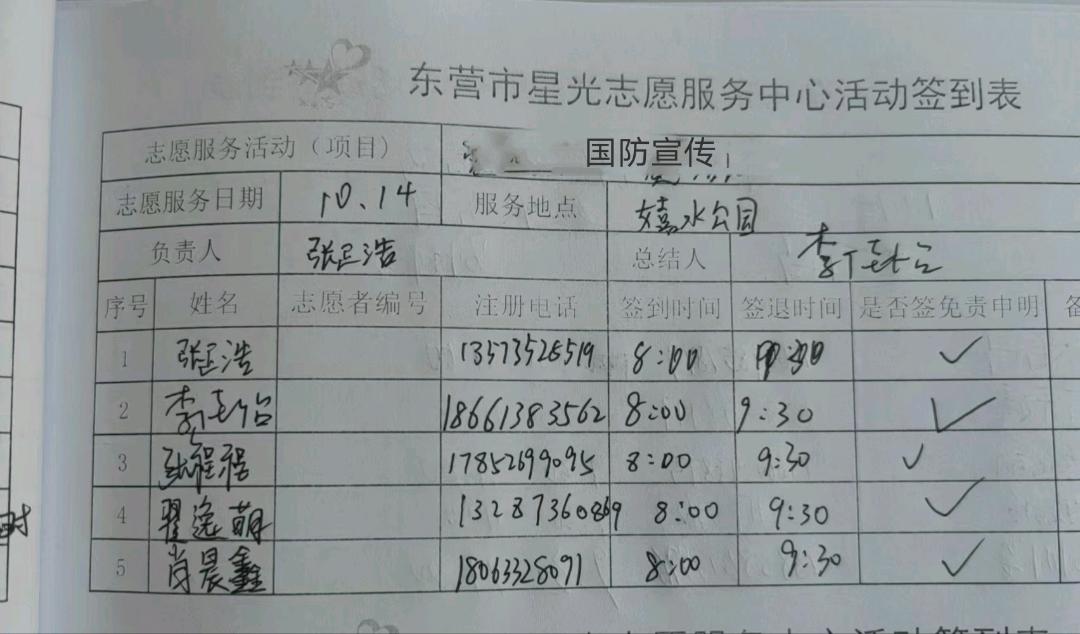 东营市星光志愿服务中心活动签到表
志愿服务活动（项目） 国防宣传
志愿服务日期 10.14 服务地点 嬉水公园
负责人 张正浩 总结人 李
序号 姓名 志愿者编号 注册电话 签到时间 签退时间 是否签免责申明
1 张正浩 13573526519 8:00
2 李 18661383562 8:00 9:30
3 张程程 17852699095 8:00 9:30
4 翟逸萌 13287360869 8:00 9:30
5 肖晨鑫 18063328091 8:00 9:30